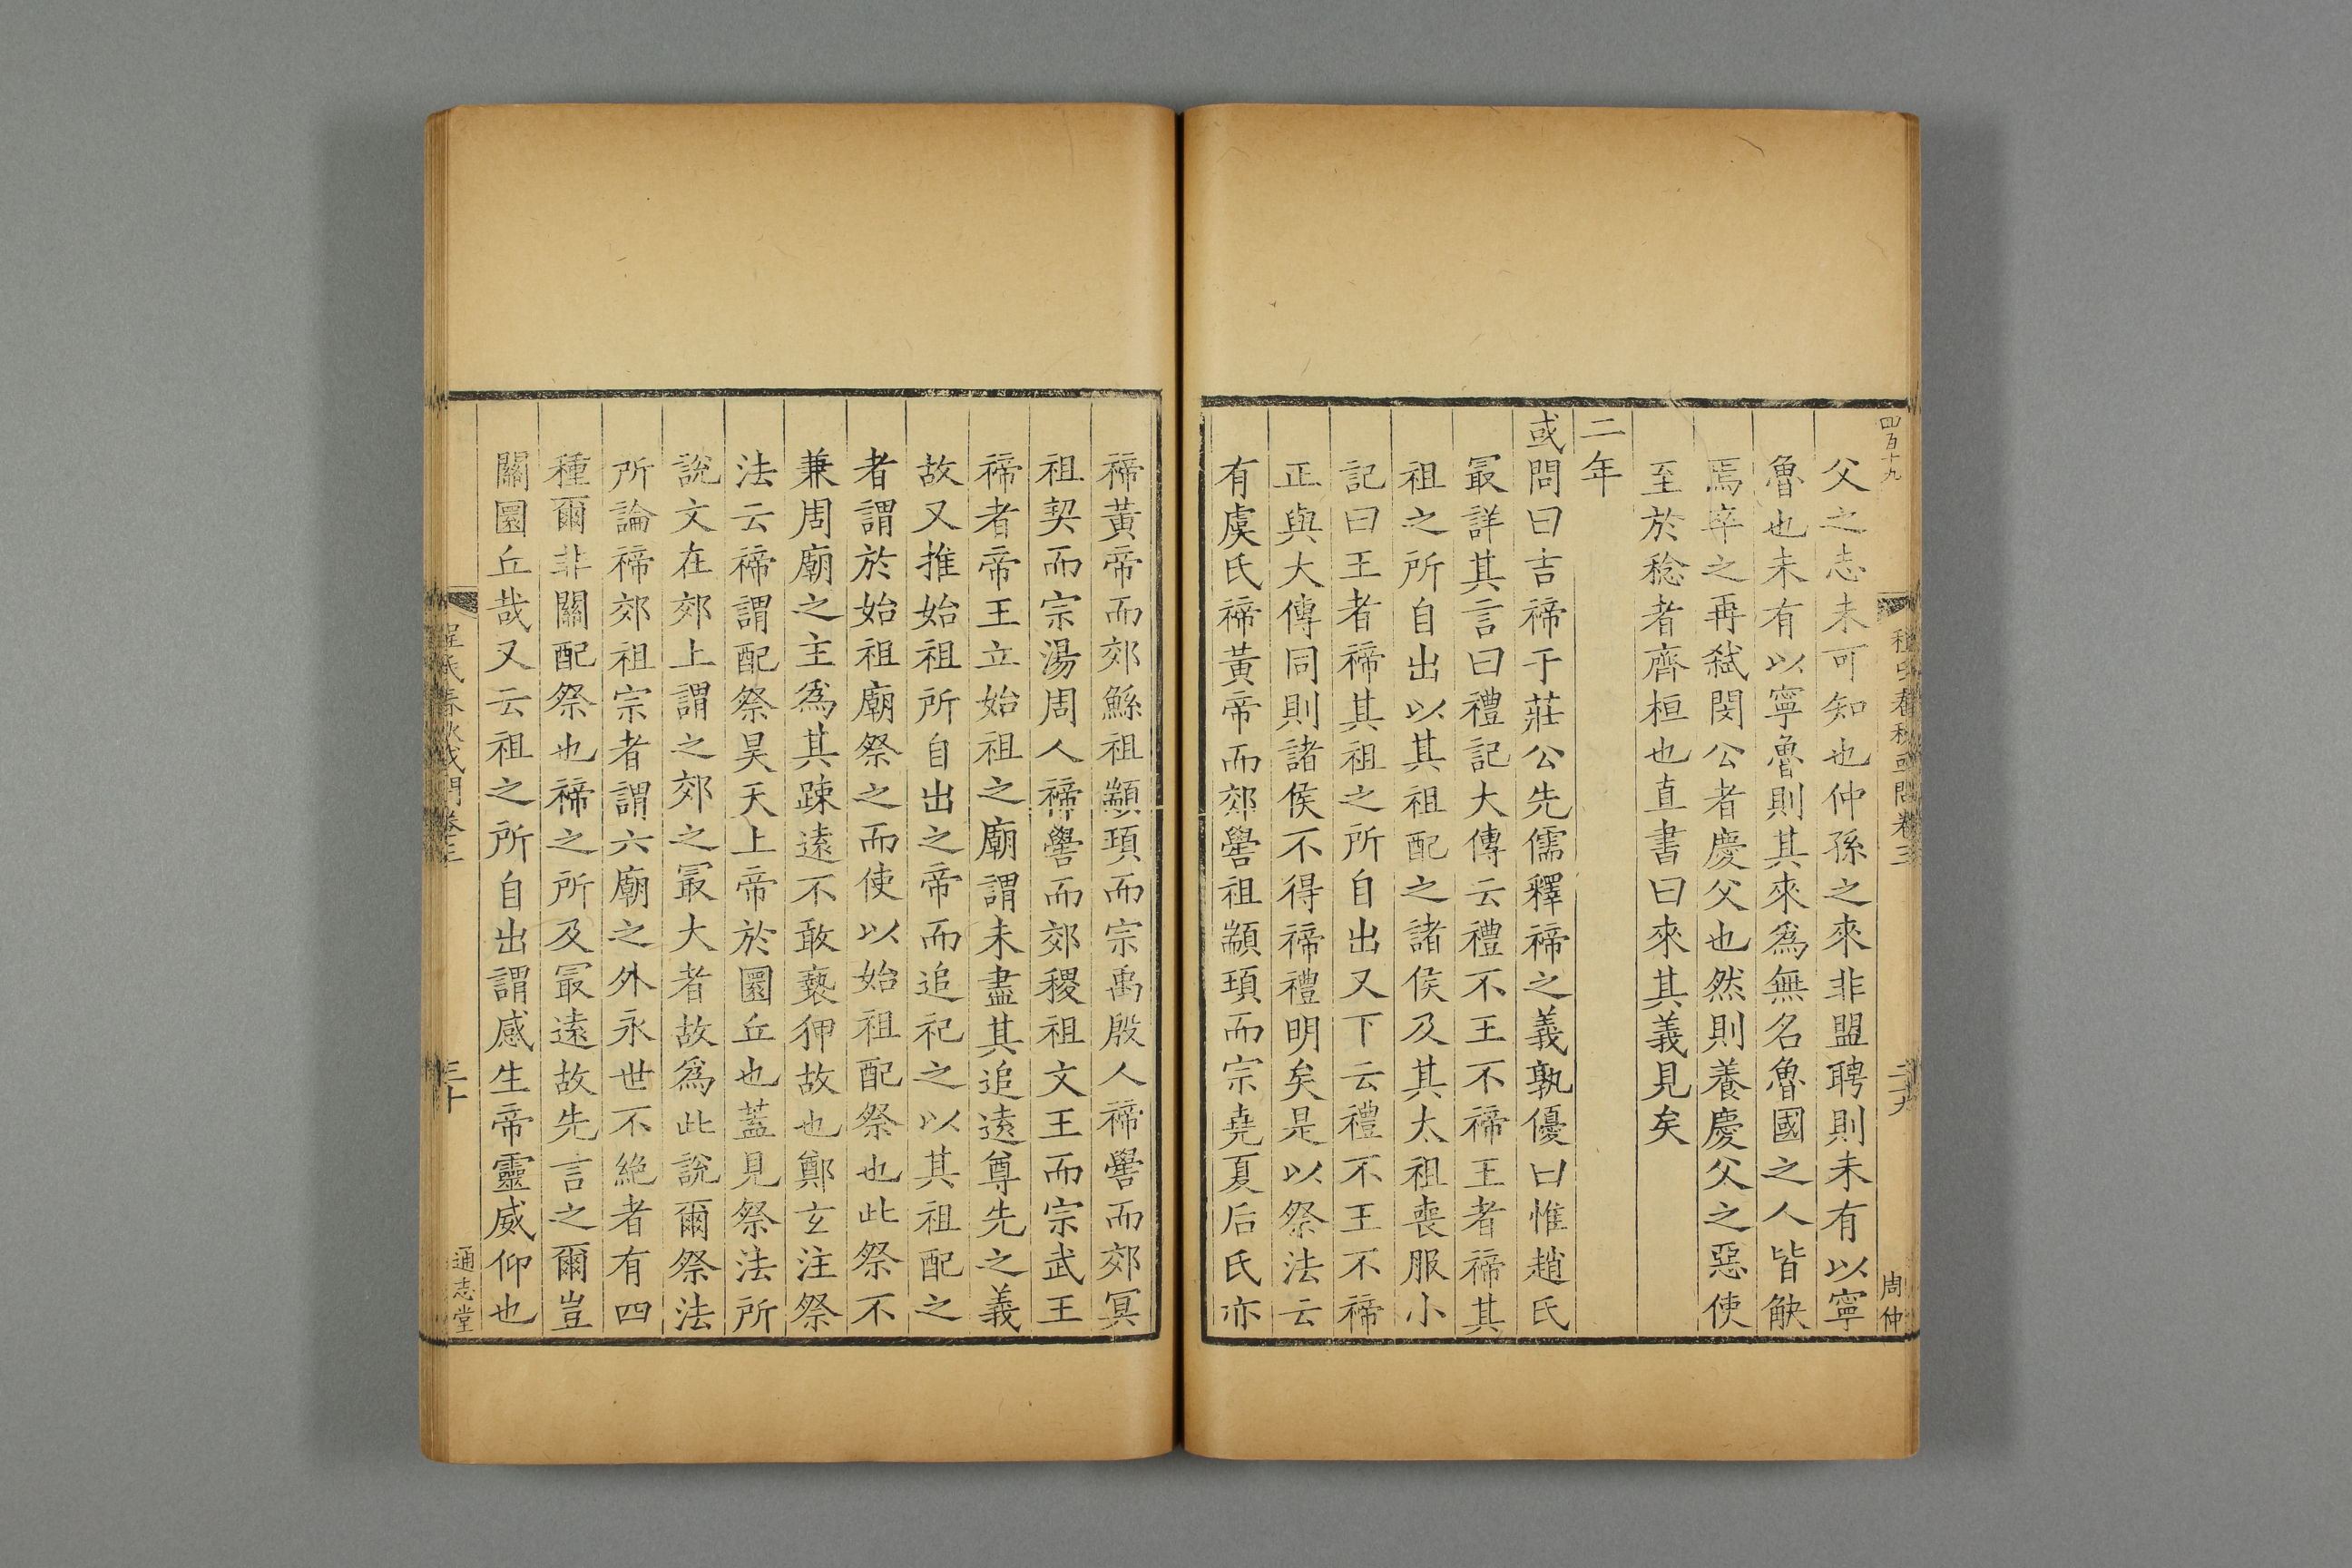 四百十九
程氏春秋或問卷三
二十九
周仲
父之志未可知也仲孫之來非盟聘則未有以寧
魯也未有以寧魯則其來爲無名魯國之人皆觖
焉卒之再弑閔公者慶父也然則養慶父之惡使
至於稔者齊桓也直書曰來其義見矣
二年
或問曰吉禘于莊公先儒釋禘之義孰優曰惟趙氏
最詳其言曰禮記大傳云禮不王不禘王者禘其
祖之所自出以其祖配之諸侯及其太祖喪服小
記曰王者禘其祖之所自出又下云禮不王不禘
正與大傳同則諸侯不得禘禮明矣是以祭法云
有虞氏禘黃帝而郊嚳祖顓頊而宗堯夏后氏亦
禘黃帝而郊鯀祖顓頊而宗禹殷人禘嚳而郊冥
祖契而宗湯周人禘嚳而郊稷祖文王而宗武王
禘者帝王立始祖之廟謂未盡其追遠尊先之義
故又推始祖所自出之帝而追祀之以其祖配之
者謂於始祖廟祭之而使以始祖配祭也此祭不
兼周廟之主爲其踈遠不敢褻狎故也鄭玄注祭
法云禘謂配祭昊天上帝於圜丘也蓋見祭法所
說文在郊上謂之郊之最大者故爲此說爾祭法
所論禘郊祖宗者謂六廟之外永世不絕者有四
種爾非關配祭也禘之所及最遠故先言之爾豈
關圜丘哉又云祖之所自出謂感生帝靈威仰也
程氏春秋或問卷三
三十
通志堂